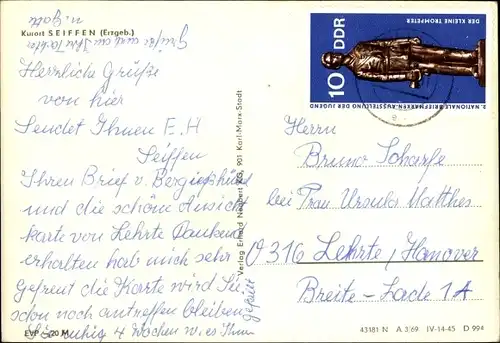 Kurort SEIFFEN (Erzgeb.)
Grüße auch an Ihre Tochter
u. Gatte
Herrliche Grüße
von hier
Sendet Ihnen E. H
Seiffen
Ihren Brief v. Bergießhübel
und die schöne Ansich
karte von Lehrte Dankend
erhalten hab mich sehr
Gefreut die Karte wird Sie
schon noch antreffen bleiben
Sie ruhig 4 Wochen wo es Ihnen
gefällt
EVP -,20 M
Verlag Erhard Neubert KG, 901 Karl-Marx-Stadt
10 DDR
2. NATIONALE BRIEFMARKEN-AUSSTELLUNG DER JUGEND
DER KLEINE TROMPETER
Herrn
Bruno Scharfe
bei Frau Ursula Matthes
0316 Lehrte/Hanover
Breite-Lade 1A
43181 N A 3/69 IV-14-45 D 994